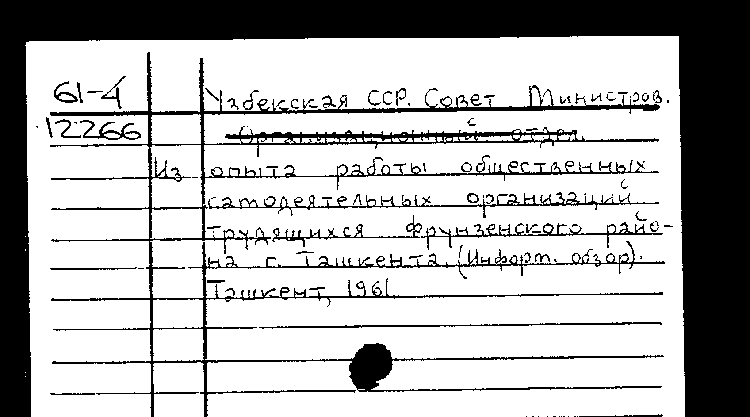 61-4 Узбекская ССР. Совет Министров.
12266 Организационный отдел.
Из опыта работы общественных
самодеятельных организаций
трудящихся Фрунзенского райо-
на г. Ташкента. (Информ. обзор).
Ташкент, 1961.